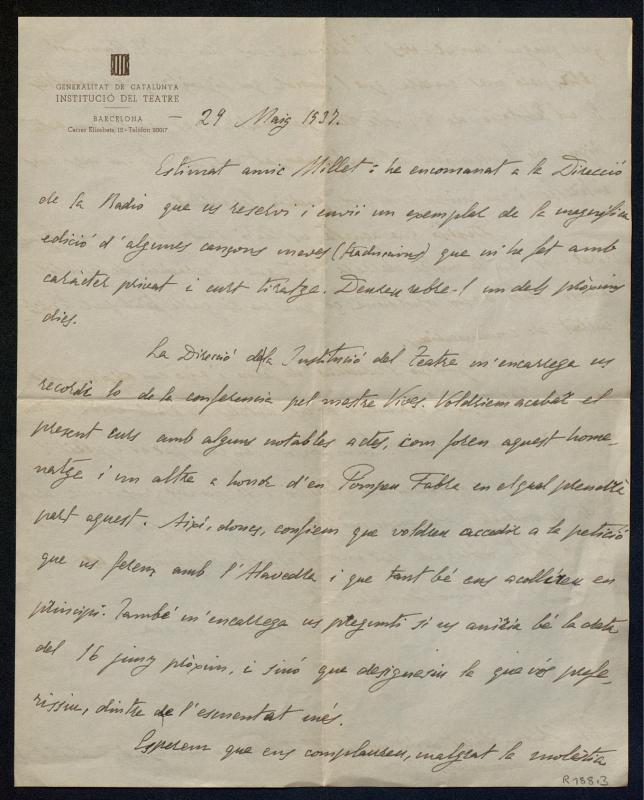 GENERALITAT DE CATALUNYA
INSTITUCIÓ DEL TEATRE
BARCELONA
Carrer Elisabets, 12 - Telèfon 20017
- 29 Maig 1937.
Estimat amic Millet: he encomanat a la Direcció
de la Radio que us reservi i enviï un exemplar de la magnífica
edició d'algunes cançons meves (traduccions) que m'ha fet amb
caràcter privat i curt tiratge. Deureu rebre-l un dels pròxims
dies.
La Direcció de la Institució del Teatre m'encarrega us
recordi lo de la conferencia pel mestre Vives. Voldriem acabar el
present curs amb alguns notables actes, com foren aquest home-
natge i un altre a honor d'en Pompeu Fabra en el qual prendrà
part aquest. Aixì, doncs, confiem que voldreu accedir a la petició
que us ferem amb l'Alavedra i que tant bé ens acollireu en
principi. També m'encarrega us pregunti si us aniria bé la data
del 16 juny pròxim, i sinó que designessiu la que vós prefe-
rissiu, dintre de l'esmentat més.
Esperem que ens complaureu, malgrat la molèstia
R 188.3